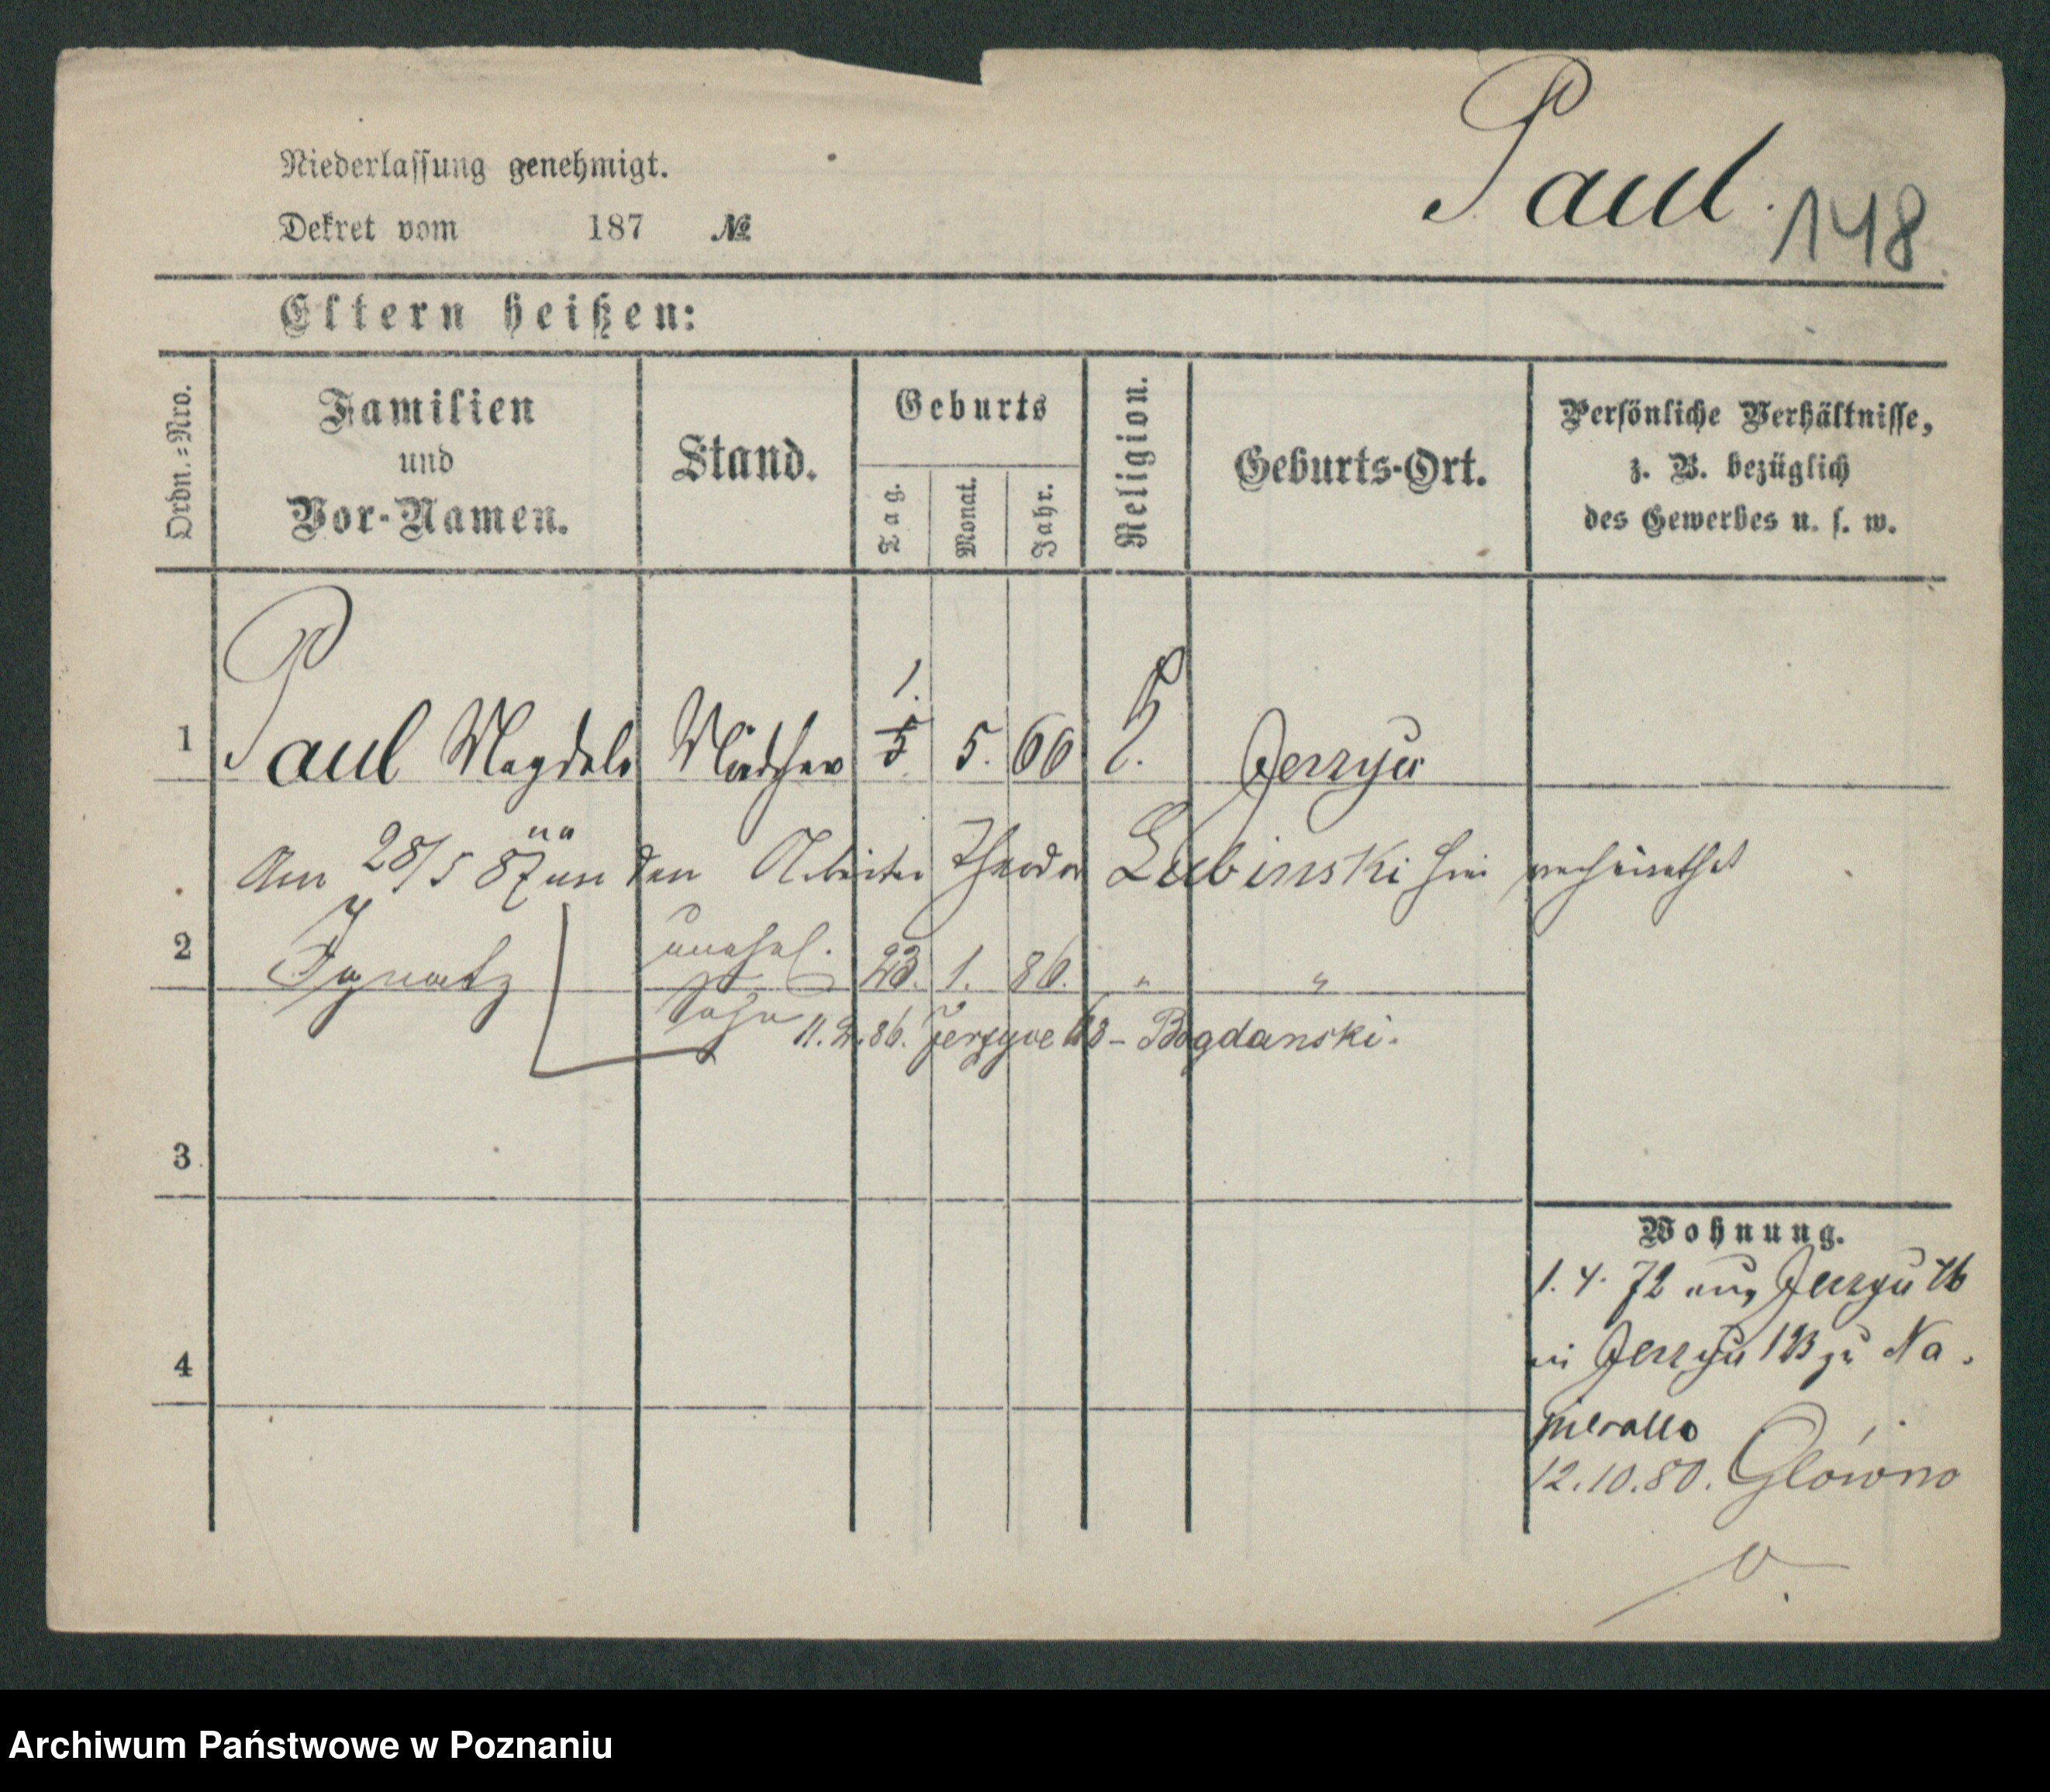 Niederlassung genehmigt.
Paul.
148
Dekret vom 187 №
Eltern heißen:
Ordn.=Nro.
Familien
und
Vor-Namen.
Stand.
Geburts
Tag.
Monat.
Jahr.
Religion.
Geburts-Ort.
Persönliche Verhältnisse,
z. B. bezüglich
des Gewerbes u. s. w.
1 Paul Magdale Mädchen 1. 5 5. 66 Jerzyce
Am 28/5 87 den Arbeiter Theodor Lubinski hier verheirathet
2 Ignatz unehel. Sohn 23. 1. 86. " "
11.2.86. Jerzyce - Bogdanski.
3
4
Wohnung.
1. 4. 72 aus Jerzyce 16
in Jerzyce zu Na-
pieralla
12.10.80. Główno
Archiwum Państwowe w Poznaniu